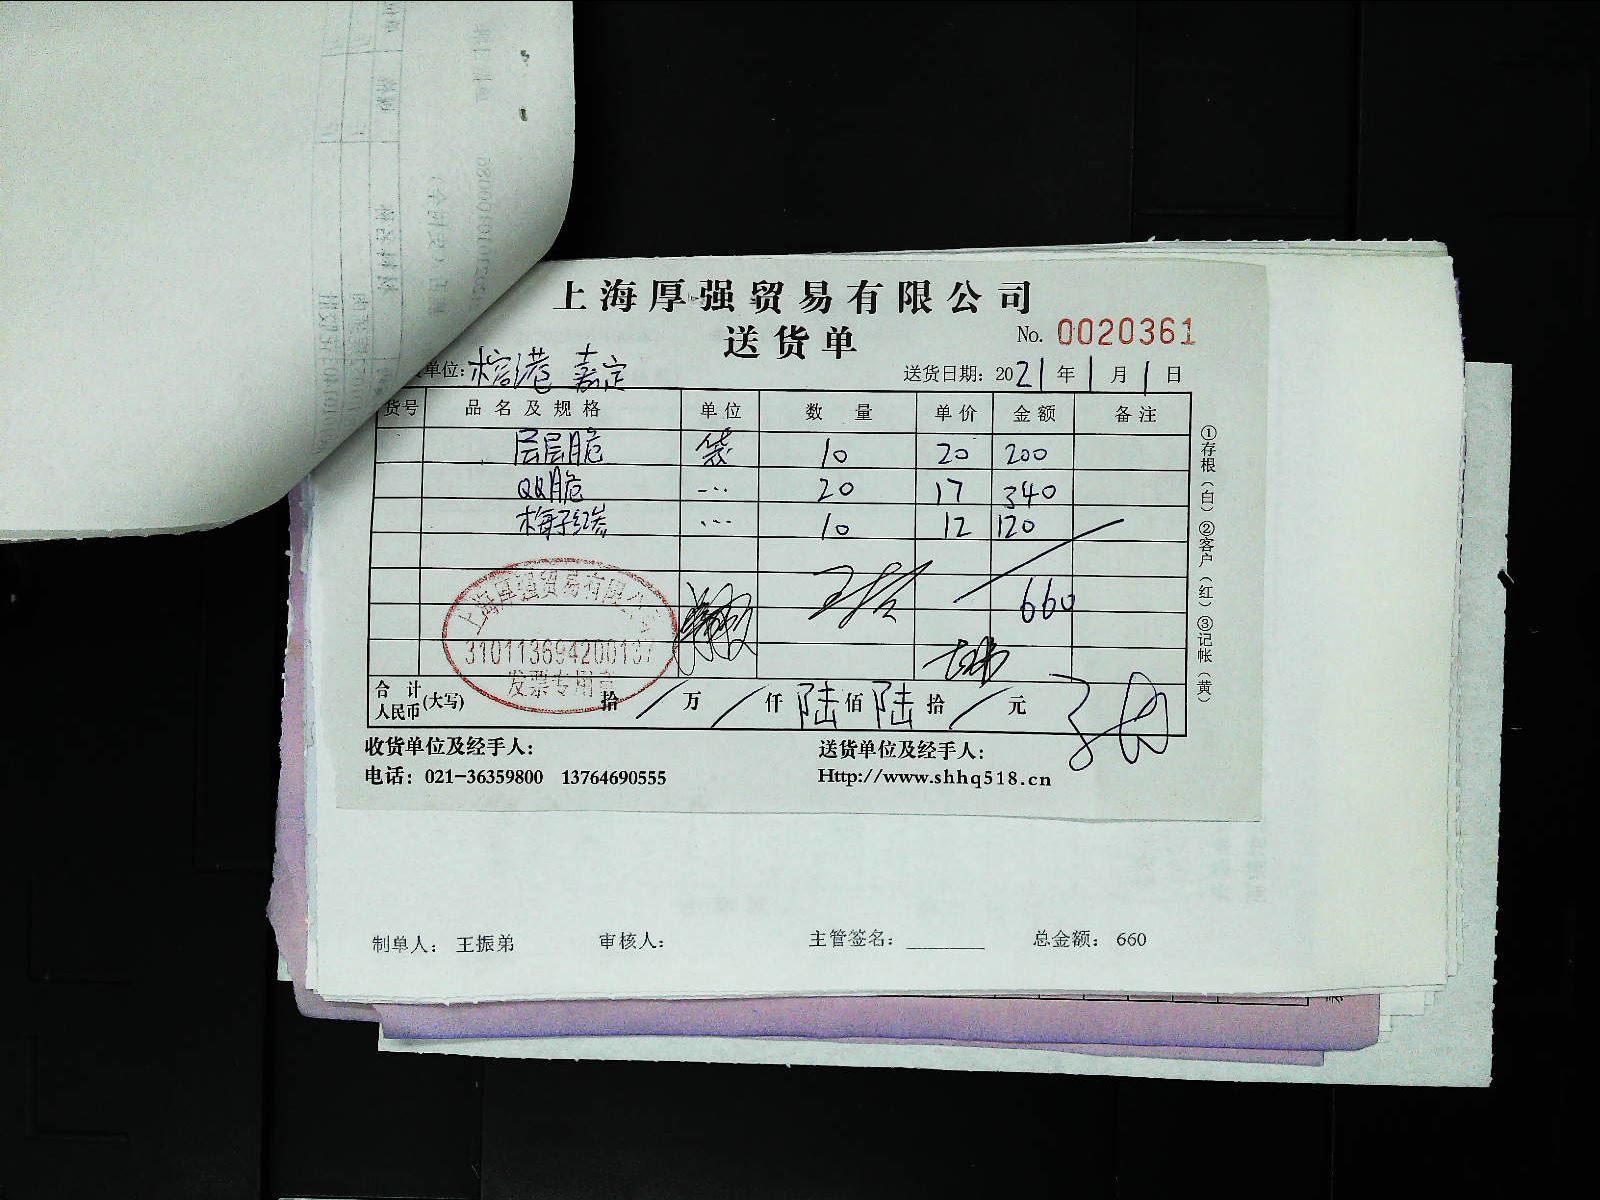 上海厚强贸易有限公司
送货单
No. 0020361
单位: 榕港 嘉定
送货日期: 2021年1月1日
货号 品名及规格 单位 数量 单价 金额 备注
层层脆 袋 10 20 200
QQ脆 ... 20 17 340
梅子 ... 10 12 120
660
上海厚强贸易有限公司
310113694200137
发票专用章
合计人民币(大写) 拾/万/仟陆佰陆拾/元
①存根(白) ②客户(红) ③记帐(黄)
收货单位及经手人: 送货单位及经手人:
电话: 021-36359800 13764690555 Http://www.shhq518.cn
制单人: 王振弟 审核人: 主管签名: ________ 总金额: 660